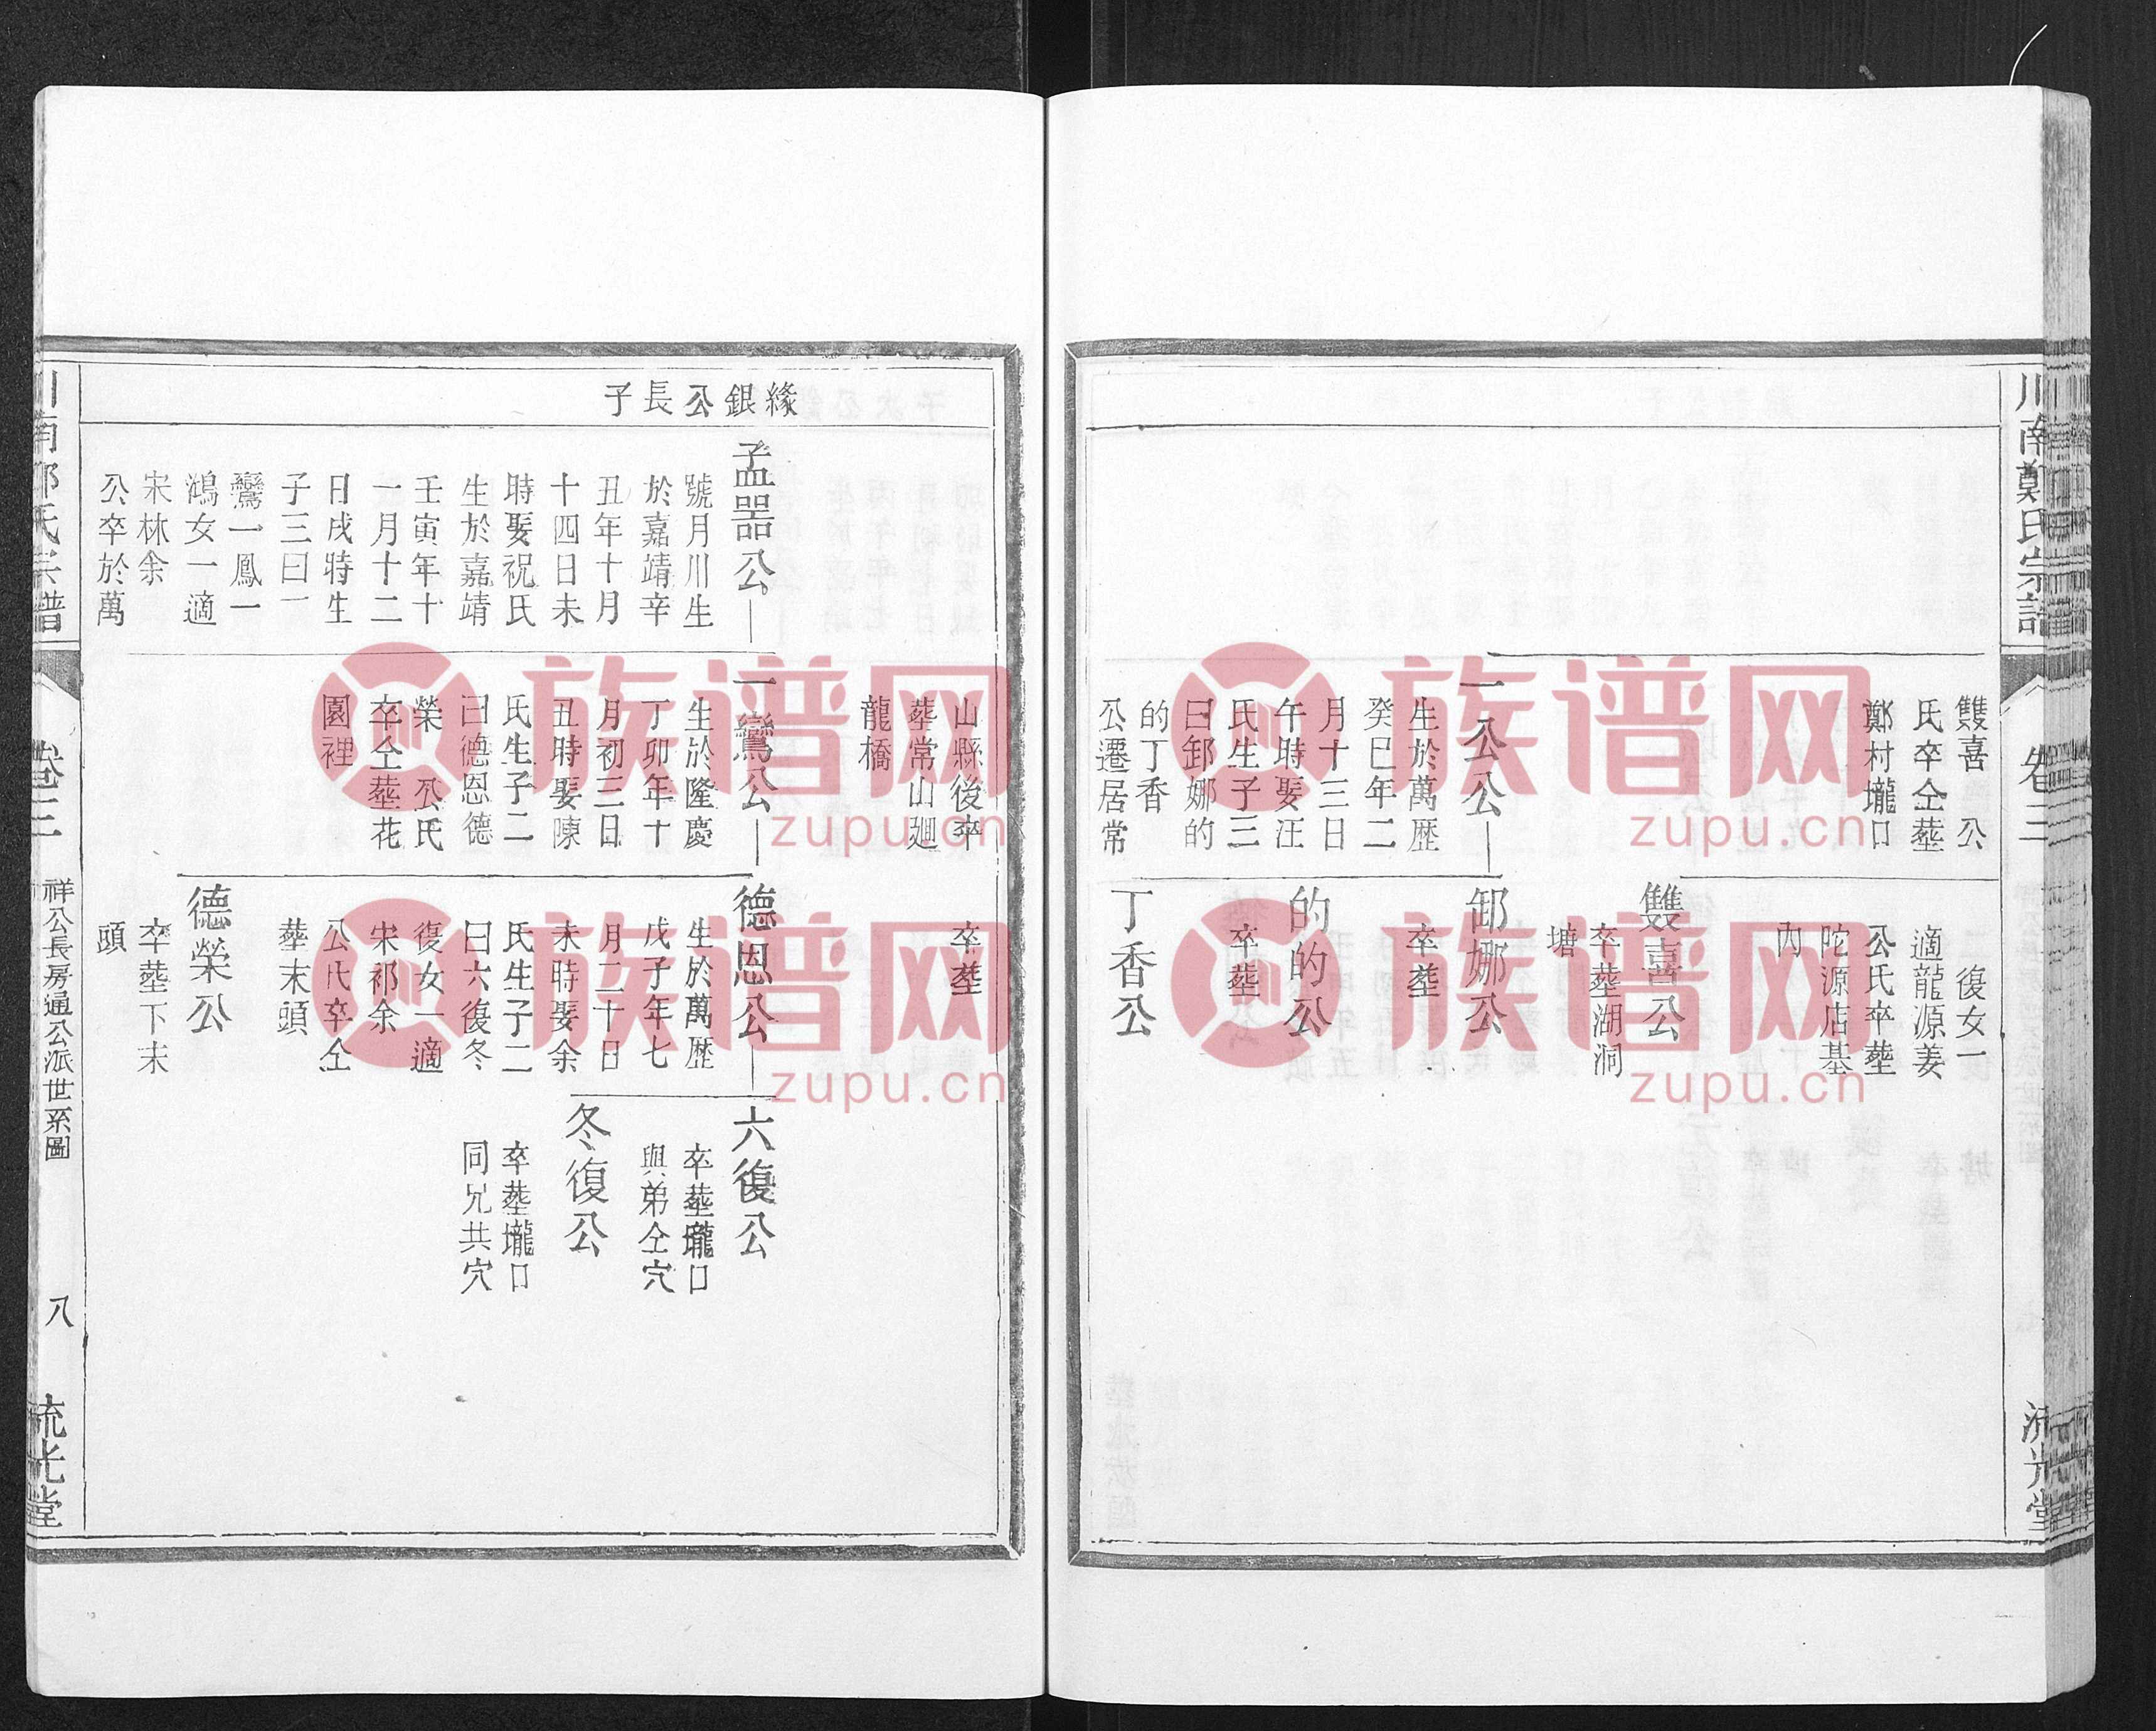 川南鄭氏宗譜
卷三
流光堂
雙喜 公
氏卒仝塟
鄭村壠口
一公公
生於萬歷
癸巳年二
月十三日
午時娶汪
氏生子三
曰卸娜的
的丁香
公遷居常
復女一
適龍源姜
公氏卒塟
陀源店基
內
雙喜公
卒塟湖洞
塘
卸娜公
卒塟
的的公
卒塟
丁香公
緣銀公長子
孟器公
號月川生
於嘉靖辛
丑年十月
十四日未
時娶祝氏
生於嘉靖
壬寅年十
一月十二
日戌時生
子三曰一
鸞一鳳一
鴻女一適
宋林余
公卒於萬
山縣後卒
塟常山廻
龍橋
一鸞公
生於隆慶
丁卯年十
月初三日
丑時娶陳
氏生子二
曰德恩德
榮 公氏
卒仝塟花
園裡
卒塟
德恩公
生於萬歷
戊子年七
月二十日
未時娶余
氏生子二
曰六復冬
復女一適
宋祁余
公氏卒仝
塟末頭
德榮公
卒塟下末
頭
六復公
卒塟壠口
與弟仝穴
冬復公
卒塟壠口
同兄共穴
川南鄭氏宗譜
卷三
祥公長房通公派世系圖
八
流光堂
族谱网
zupu.cn
族谱网
zupu.cn
族谱网
zupu.cn
族谱网
zupu.cn